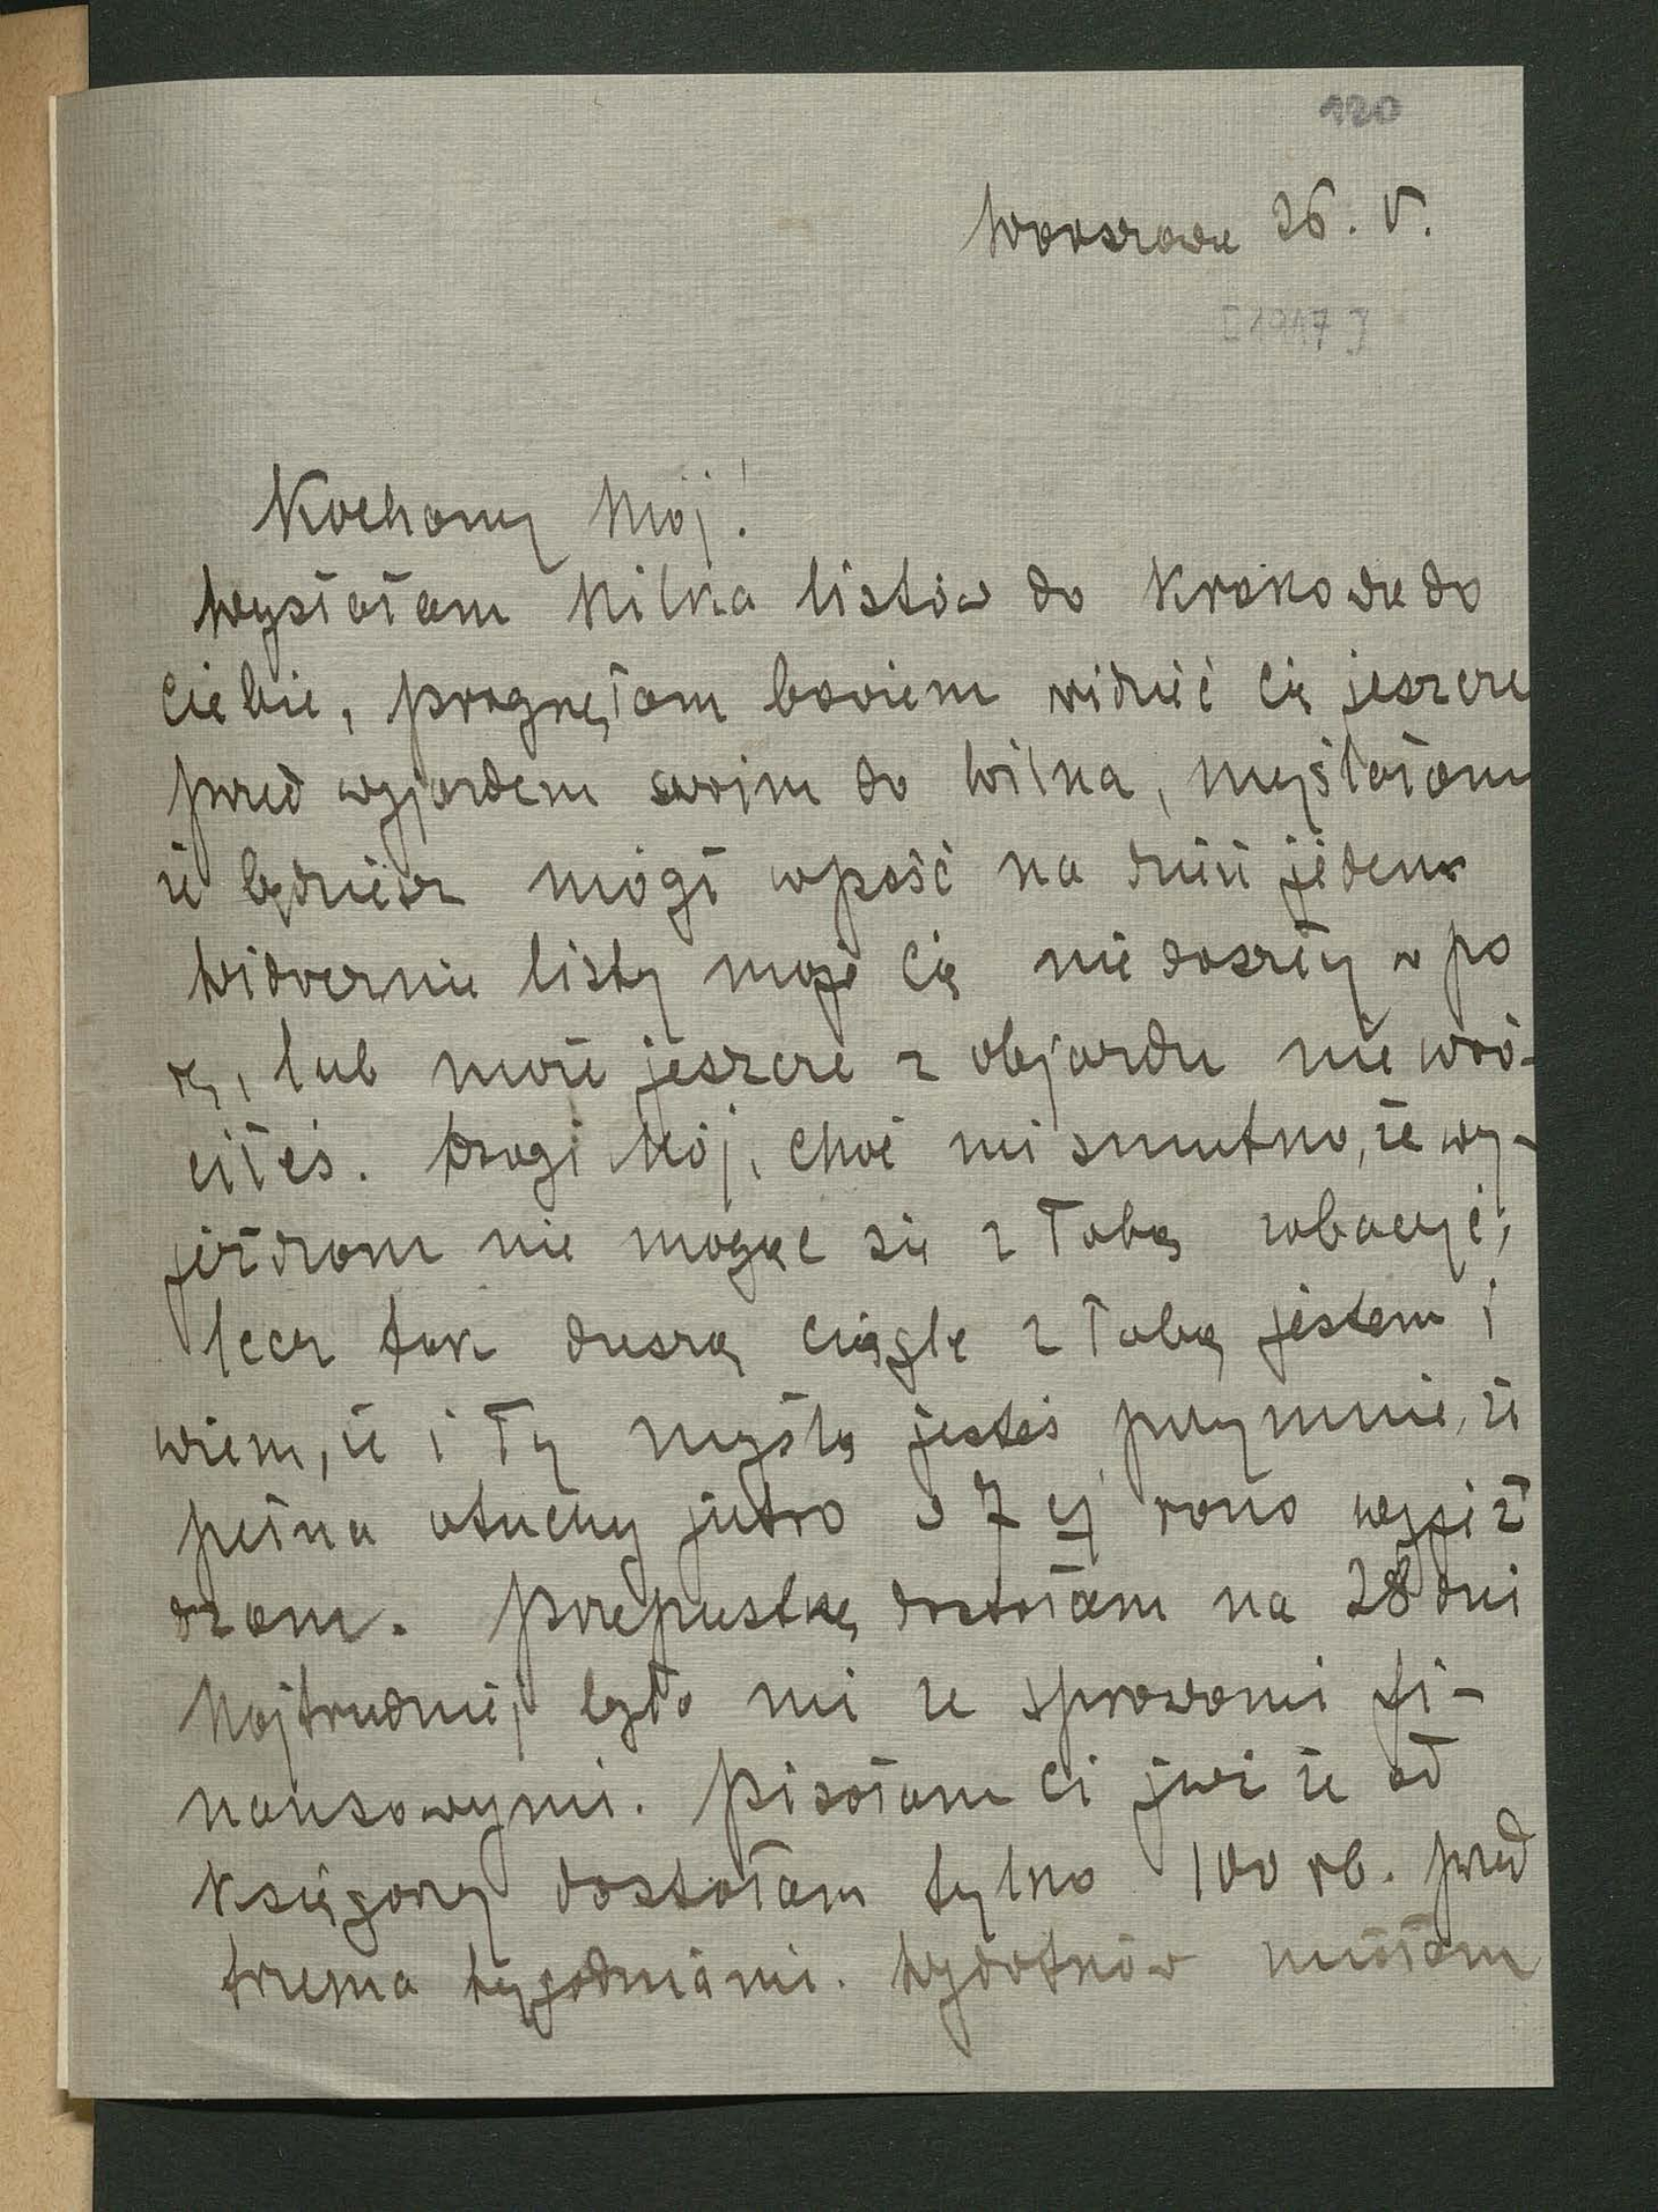 120
Warszawa 26. V.
[1917]
Kochany Mój!
Wysłałam kilka listów do Krakowa do
Ciebie, pragnęłam bowiem widzieć Cię jeszcze
przed wyjazdem swoim do Wilna, myślałam
że będziesz mógł wpaść na dzień jeden
Widocznie listy moje Cię nie doszły w po
rę, lub może jeszcze z objazdu nie wró-
ciłeś. Drogi Mój, choć mi smutno, że wy-
jeżdżam nie mogąc się z Tobą zobaczyć,
lecz tak duszą ciągle z Tobą jestem i
wiem, że i Ty myślą jesteś przymnie, że
pełna otuchy jutro o 7 ej rano wyjeż
dżam. Przepustkę dostałam na 28 dni
Najtrudniej było mi ze sprawami fi-
nansowymi. Pisałam Ci już że od
Księgarzy dostałam tylko 100 rb. przed
trzema tygodniami. Wydatków miałam